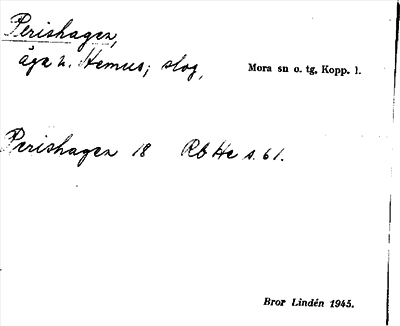 Perishagen,
äga n. Hemus; slog,
Mora sn o. tg, Kopp. l.
Perishagen 18 Rb He s. 61.
Bror Lindén 1945.